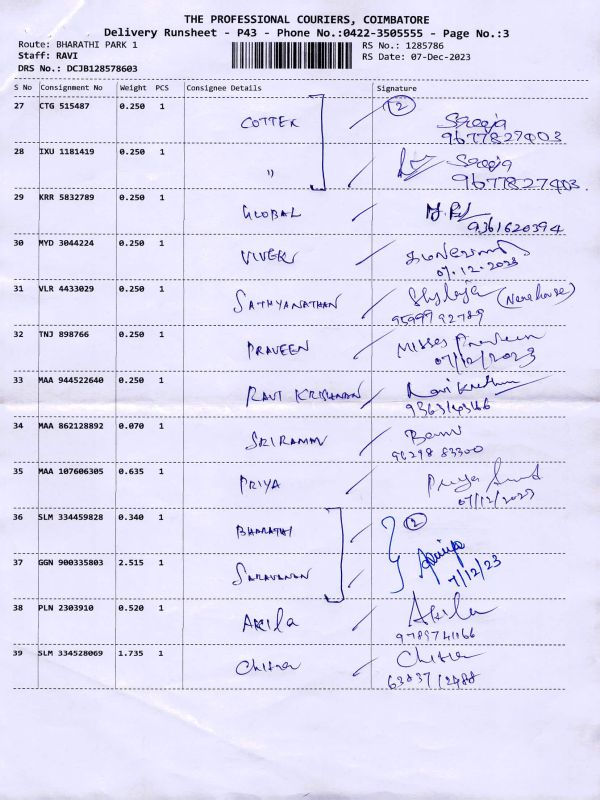 THE PROFESSIONAL COURIERS, COIMBATORE
Delivery Runsheet - P43 - Phone No.:0422-3505555 - Page No.:3
Route: BHARATHI PARK 1 RS No.: 1285786
Staff: RAVI RS Date: 07-Dec-2023
DRS No.: DCJB128578603
S No Consignment No Weight PCS Consignee Details Signature
27 CTG 515487 0.250 1 COTTEK 2 Sreeja
9677827403
28 IXU 1181419 0.250 1 " Sreeja
9677827403
29 KRR 5832789 0.250 1 GLOBAL
9361620394
30 MYD 3044224 0.250 1 VIVEK
07.12.2023
31 VLR 4433029 0.250 1 SATHYANATHAN Shylaja
9599992789
32 TNJ 898766 0.250 1 PRAVEEN Misses Praveen
07/12/2023
33 MAA 944522640 0.250 1 RAVI KRISHNAN
34 MAA 862128892 0.070 1 SRIRAMM
96298 83300
35 MAA 107606305 0.635 1 PRIYA Priya
07/12/2023
36 SLM 334459828 0.340 1 BHARATHI 2
37 GGN 900335803 2.515 1 SARAVANAN
7/12/23
38 PLN 2303910 0.520 1 AKILA Akila
39 SLM 334528069 1.735 1 Chitra Chitra
63837 12488